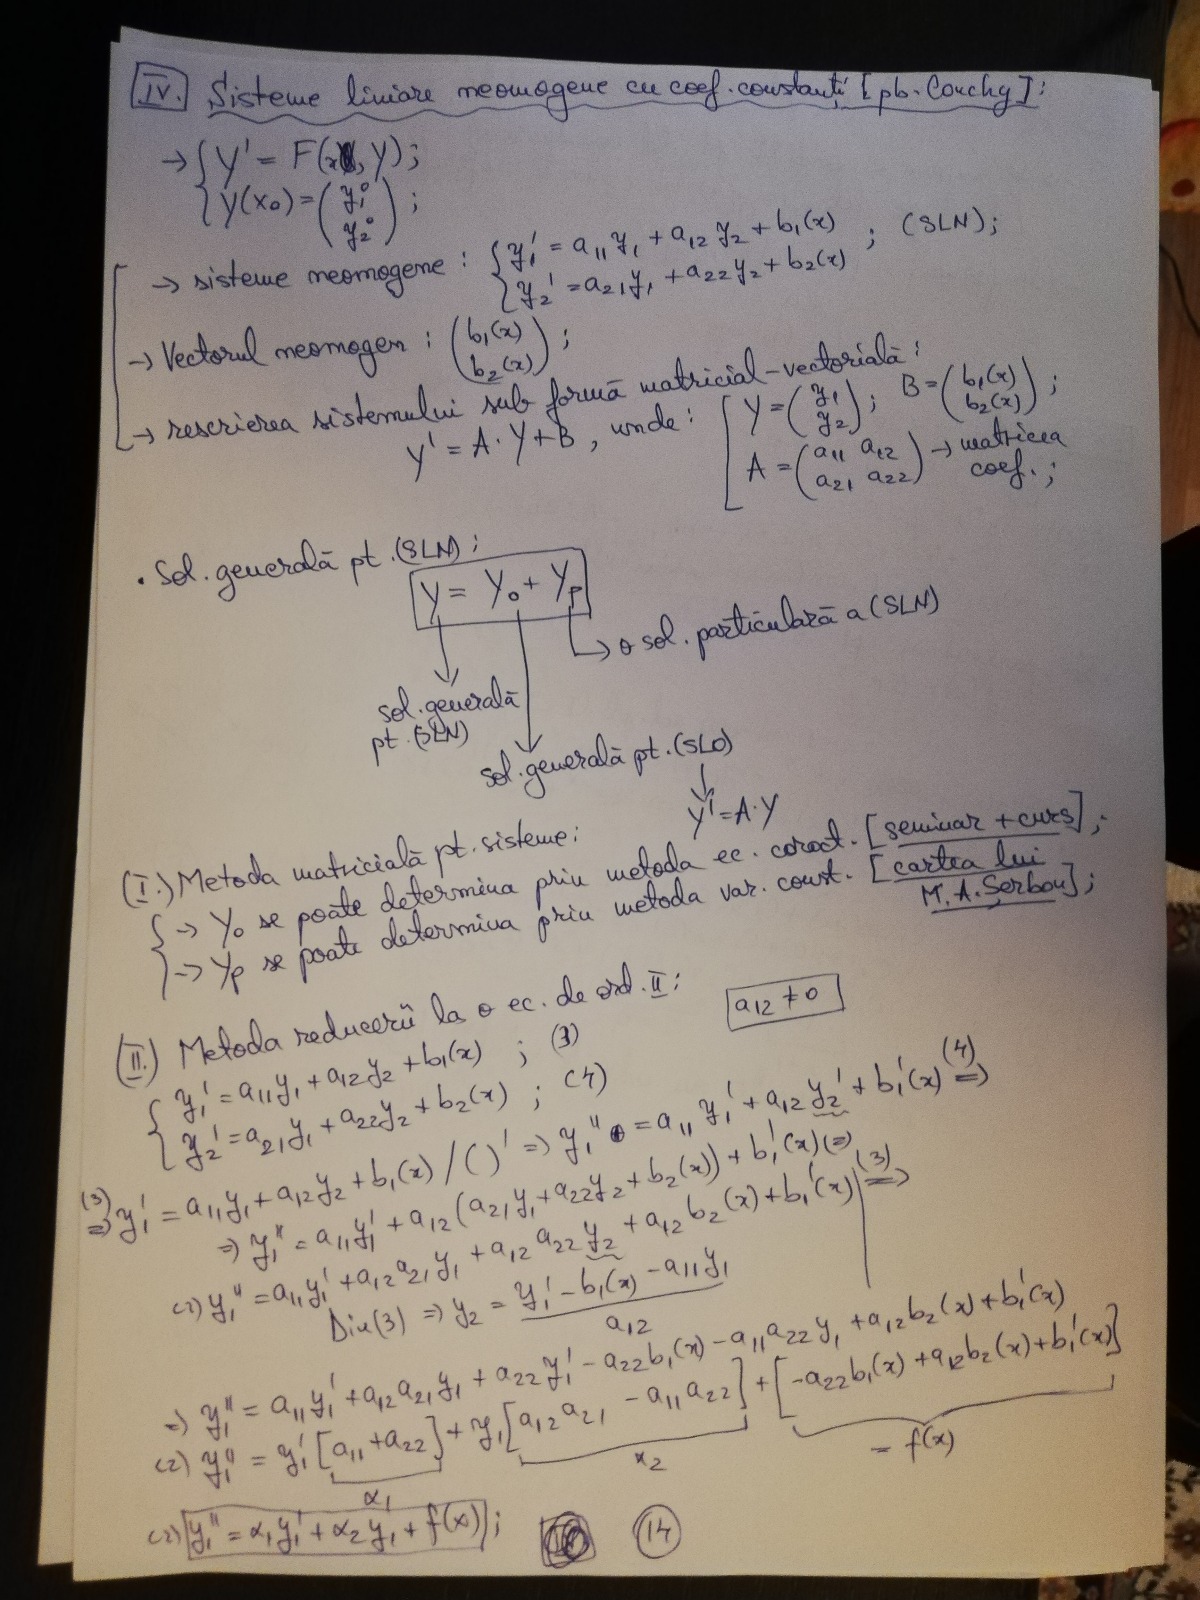 IV. Sisteme liniare neomogene cu coef. constanți [pb. Cauchy]:
→ { Y' = F(x, Y);
Y(x₀) = (y₁⁰ y₂⁰);
→ sisteme neomogene: { y₁' = a₁₁y₁ + a₁₂y₂ + b₁(x)
y₂' = a₂₁y₁ + a₂₂y₂ + b₂(x) ; (SLN);
→ Vectorul neomogen: (b₁(x) b₂(x));
→ rescrierea sistemului sub formă matricial-vectorială:
Y' = A·Y + B, unde: [ Y = (y₁ y₂); B = (b₁(x) b₂(x));
A = (a₁₁ a₁₂ a₂₁ a₂₂) → matricea coef.;
• Sol. generală pt. (SLN);
Y = Y₀ + Yp
→ o sol. particulară a (SLN)
sol. generală
pt. (SLN)
sol. generală pt. (SLO)
Y' = A·Y
(I.) Metoda matricială pt. sisteme:
→ Y₀ se poate determina prin metoda ec. caract. [seminar + curs];
→ Yp se poate determina prin metoda var. const. [cartea lui
M. A. Șerban];
(II.) Metoda reducerii la o ec. de ord. II: a₁₂ ≠ 0
{ y₁' = a₁₁y₁ + a₁₂y₂ + b₁(x) ; (3)
y₂' = a₂₁y₁ + a₂₂y₂ + b₂(x) ; (4)
(3) => y₁' = a₁₁y₁ + a₁₂y₂ + b₁(x) / ( )' => y₁'' = a₁₁y₁' + a₁₂y₂' + b₁'(x) (4) =>
=> y₁'' = a₁₁y₁' + a₁₂(a₂₁y₁ + a₂₂y₂ + b₂(x)) + b₁'(x) (=)
(=) y₁'' = a₁₁y₁' + a₁₂a₂₁y₁ + a₁₂a₂₂y₂ + a₁₂b₂(x) + b₁'(x) | (3) =>
Din (3) => y₂ = (y₁' - b₁(x) - a₁₁y₁) / a₁₂
=> y₁'' = a₁₁y₁' + a₁₂a₂₁y₁ + a₂₂y₁' - a₂₂b₁(x) - a₁₁a₂₂y₁ + a₁₂b₂(x) + b₁'(x)
(=) y₁'' = y₁'[a₁₁ + a₂₂] + y₁[a₁₂a₂₁ - a₁₁a₂₂] + [-a₂₂b₁(x) + a₁₂b₂(x) + b₁'(x)]
α₁ α₂ = f(x)
(=) y₁'' = α₁y₁' + α₂y₁ + f(x);
14